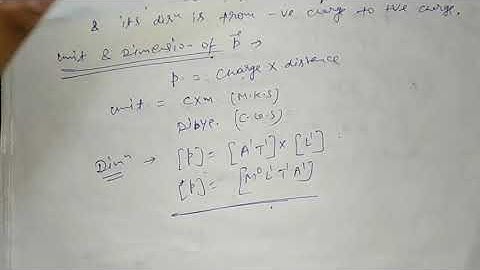 & its dirⁿ is from -ve charge to +ve charge.
unit & Dimension of p⃗ →
p = charge × distance
unit = C×m (M.K.S)
Dibye. (C.G.S)
Dimⁿ → [p] = [A¹T¹] × [L¹]
[p] = [M⁰L¹T¹A¹]